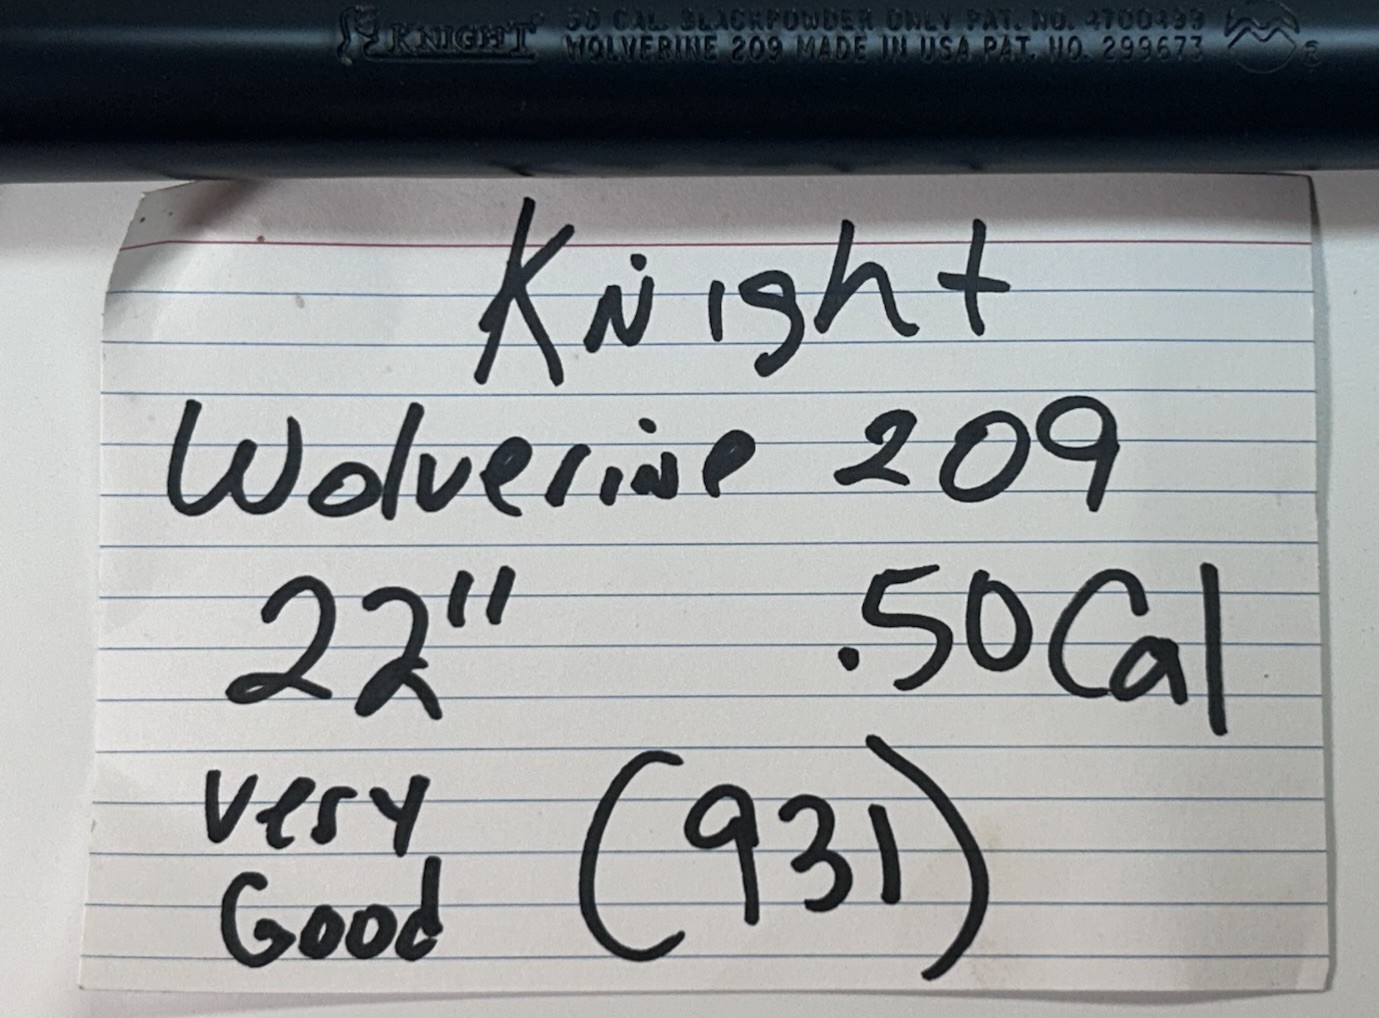 KNIGHT
50 CAL. BLACKPOWDER ONLY PAT. NO. 4700499
WOLVERINE 209 MADE IN USA PAT. NO. 299673
Knight
Wolverine 209
22" .50 Cal
very
Good (931)